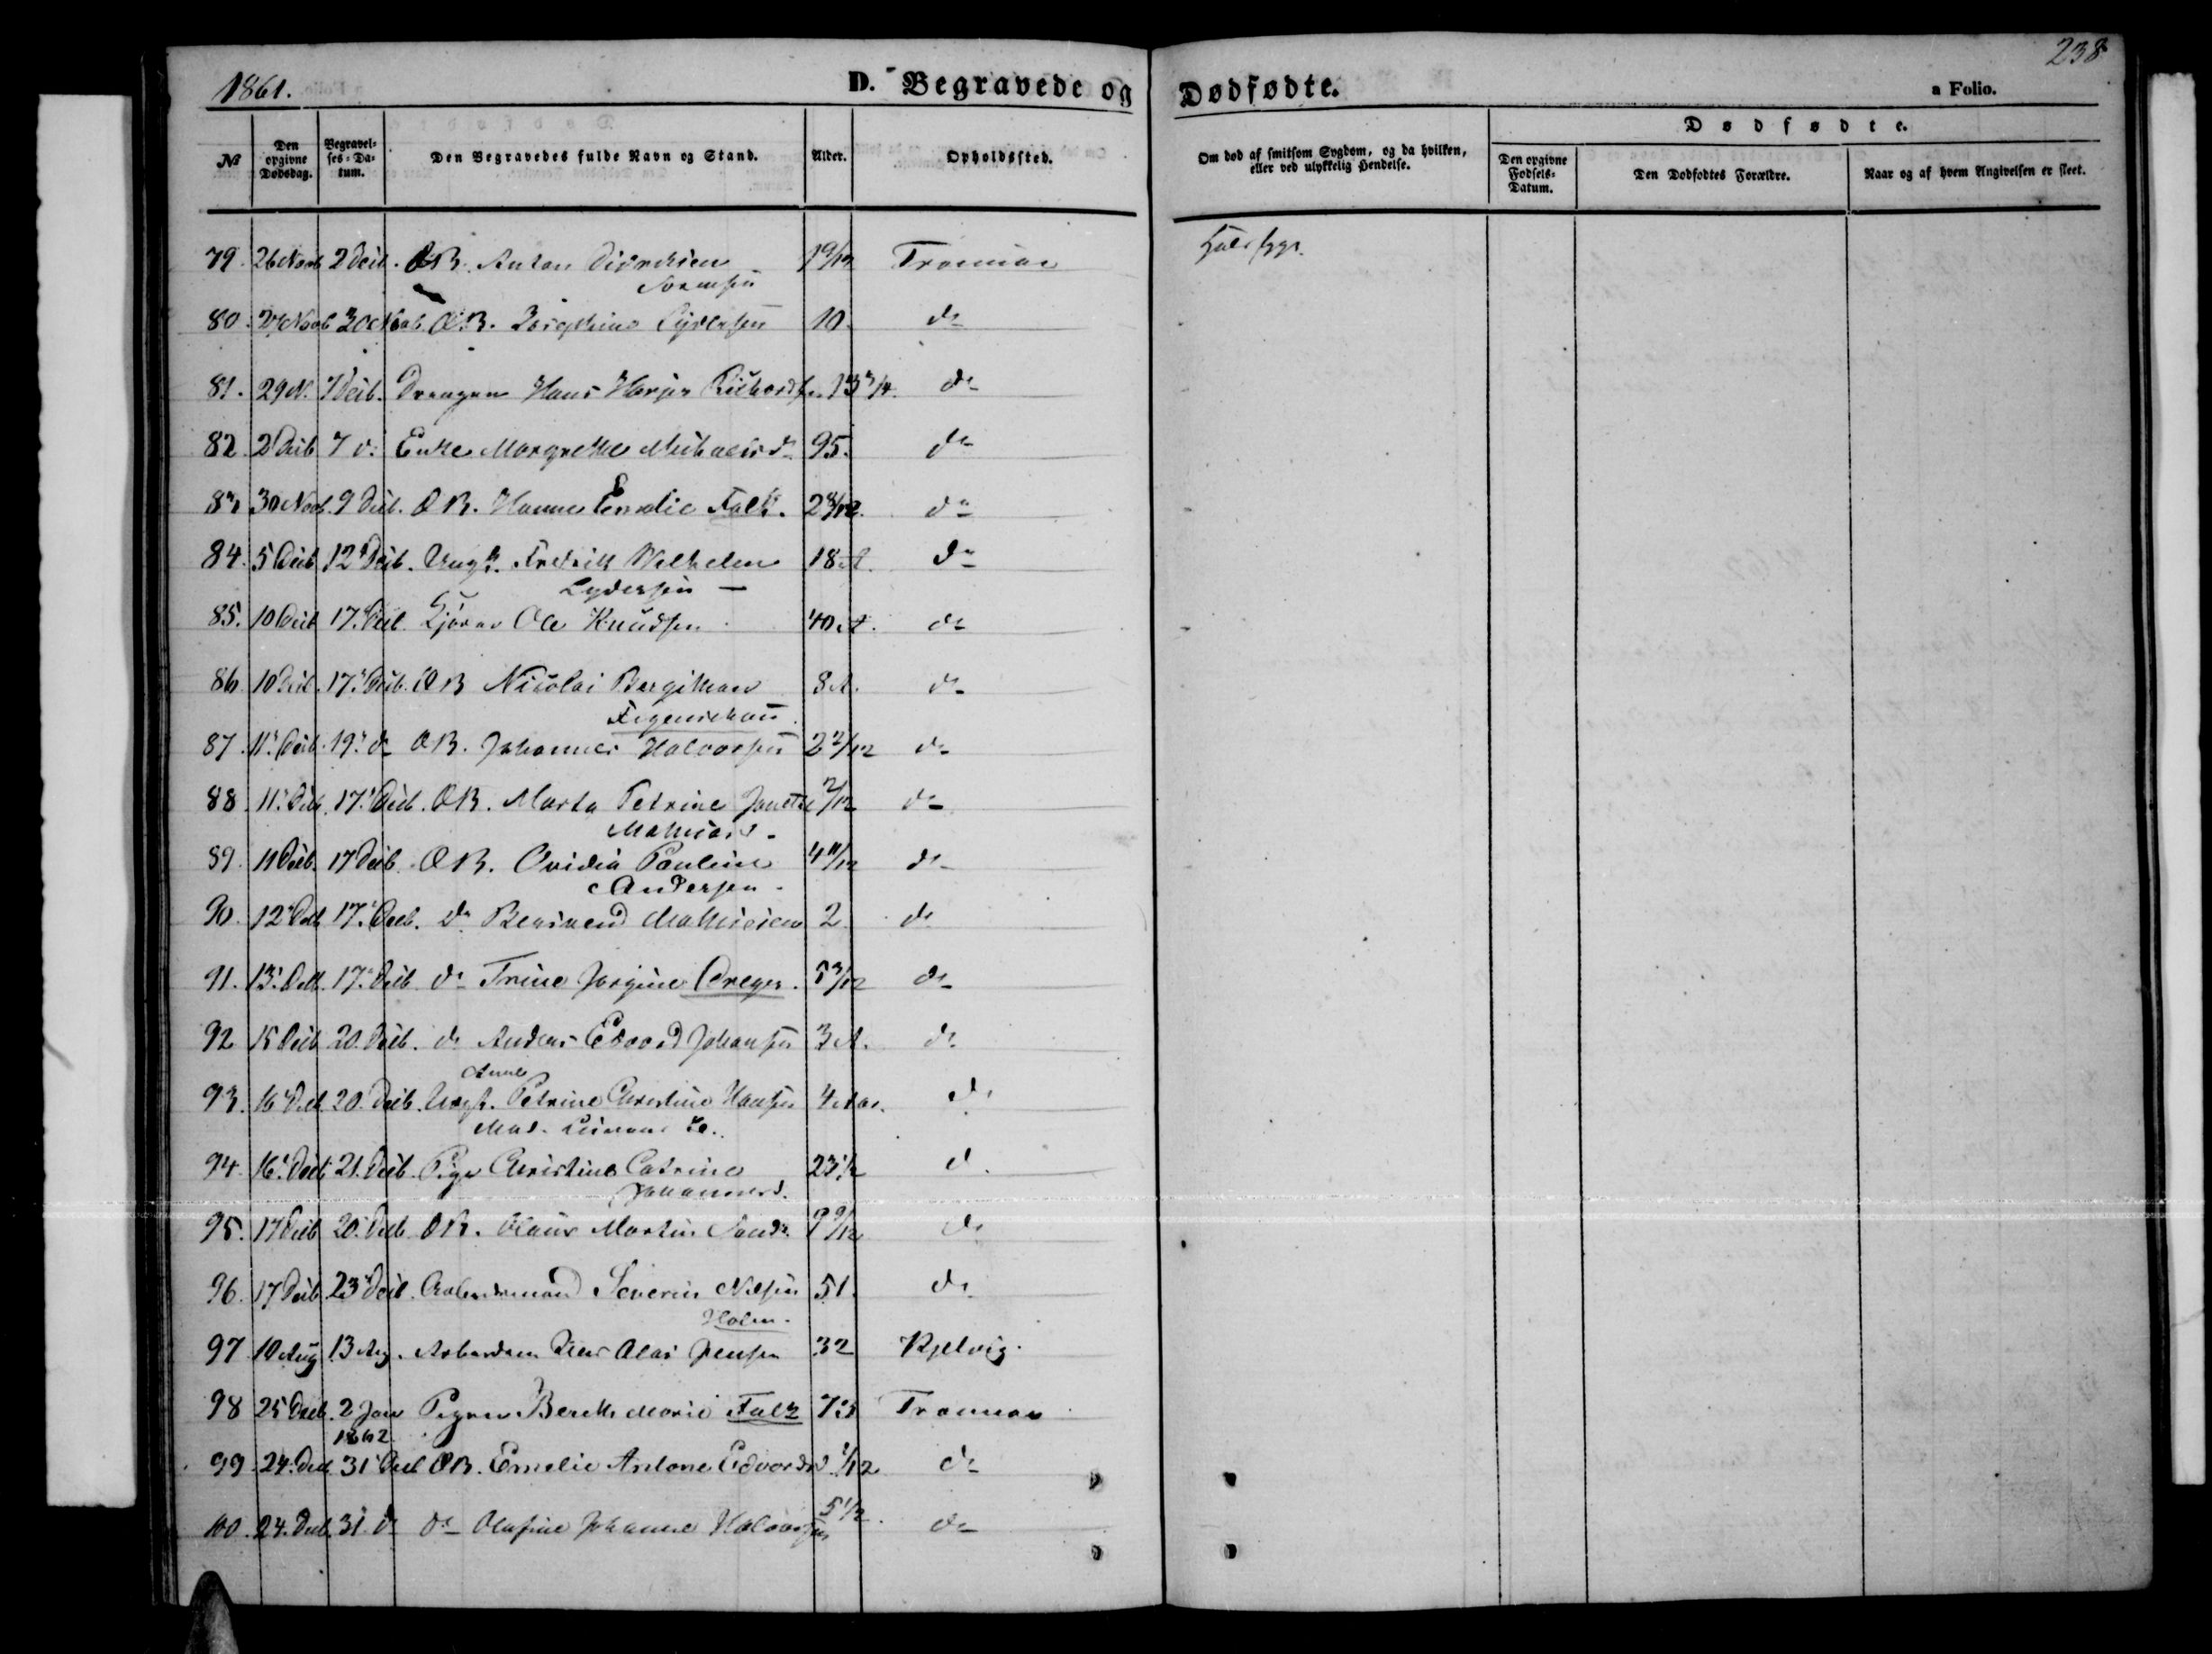 238
1861.
D. Begravede og Dødfødte.
a Folio.
Dødfødte.
№
Den opgivne Dødsdag.
Begravelses-Datum.
Den Begravedes fulde Navn og Stand.
Alder.
Opholdssted.
Om død af smitsom Sygdom, og da hvilken, eller ved ulykkelig Hendelse.
Den opgivne Fødsels-Datum.
Den Dødfødtes Forældre.
Naar og af hvem Angivelsen er skeet.
79. 26 Novb 2 Decb. ÆB. Anton 1 9/12 Tromsøe
80. Novb 30 Novb. ÆB. 10. do
81. 29 N. 7 Decb. Drengen Hans 13 3/4. do
82. 2 Decb 7 do Enke Margrethe Michaelsd. 95. do
83 30 Novb. 9 Decb. ÆB. Hanna Emelie Falk. 2 8/12. do
84. 5 Decb 12 Decb. Ungk. Fredrik Wilhelm 18 A. do
Lydersen
85. 10 Decb 17. Decb. Ole Knudsen 40 A. do
86. 10 Decb. 17. Decb. ÆB Nicolai 8 A. do
Figenschau.
87. 11. Decb. 19. do ÆB. Johannes Halvorsen 2 2/12 do
88. 11. Decb. 17. Decb. ÆB. Marta Petrine 7/12 do
Mathisd.
89. 11 Decb. 17 Decb. ÆB. Ovidia Pauline 4 11/12 do
Andersen.
90. 12 Decb 17. Decb. do Mathisen 2 do
91. 13. Decb. 17. Decb do Trine Jørgine Dreyer. 5 3/12 do
92 15 Decb 20. Decb. do Andreas Edvard Johansen 3 A. do
Anne
93. 16 Decb 20. Decb. Petrine Christine Hansen 4 do
94. 16. Decb 21. Decb. Pige Christine Catrine 23 1/2 d.
Johannesd.
95. 17 Decb 20. Decb. ÆB. Claus Martin 9 9/12 do
96. 17 Decb. 23 Decb. Arbeidsmand Severin Nilsen 51. do
Holm.
97 10 Aug 13 Aug. Olai Jensen 32 Kjelvig.
98 25 Decb. 2 Jan Pigen Berith Marie Falk 73 Tromsøe
1862
99. 24. Decb 31 Decb ÆB. Emelie Antone Edvardsd 1/12 do
100. 24. Decb. 31 do do Olufine Johanne Halvorsen 5 1/2. do